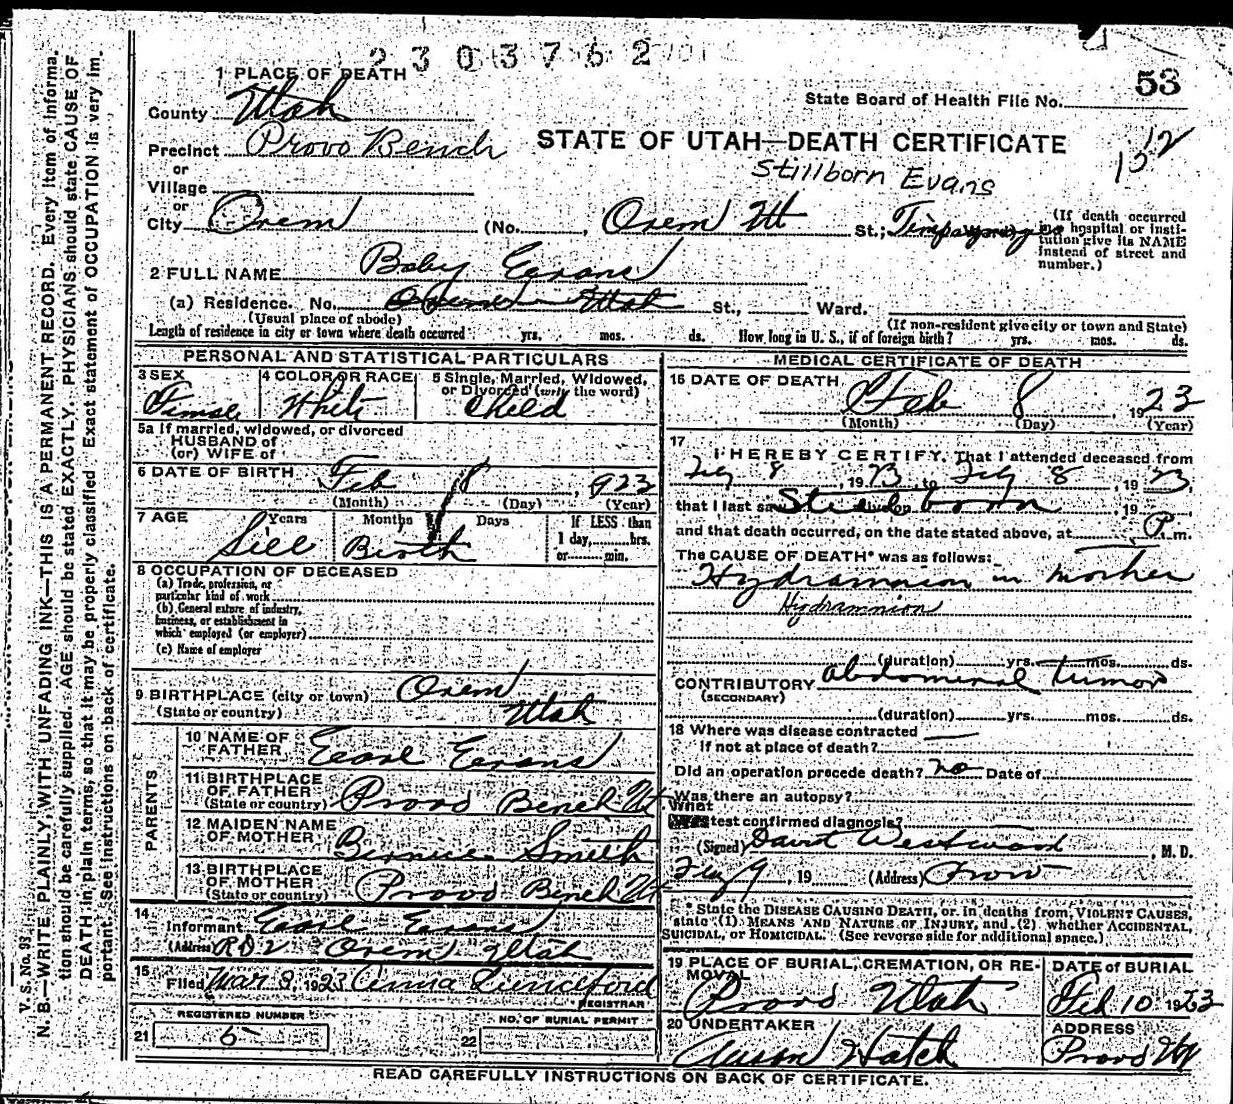 2303762
1 PLACE OF DEATH
53
State Board of Health File No.
County Utah
STATE OF UTAH—DEATH CERTIFICATE
12
Precinct Provo Bench
Stillborn Evans
or
Village
or
City Orem (No. , Orem Ut St.;
(If death occurred
in hospital or insti-
tution give its NAME
instead of street and
number.)
2 FULL NAME Baby Evans
(a) Residence. No. Orem Utah St., Ward.
(Usual place of abode) (If non-resident give city or town and State)
Length of residence in city or town where death occurred yrs. mos. ds. How long in U. S., if of foreign birth? yrs. mos. ds.
PERSONAL AND STATISTICAL PARTICULARS
3 SEX 4 COLOR OR RACE 5 Single, Married, Widowed,
or Divorced (write the word)
Female White Child
5a If married, widowed, or divorced
HUSBAND of
(or) WIFE of
6 DATE OF BIRTH Feb 8, 923
(Month) (Day) (Year)
7 AGE Years Months Days If LESS than
1 day, hrs.
or min.
Still Birth
8 OCCUPATION OF DECEASED
(a) Trade, profession, or
particular kind of work
(b) General nature of industry,
business, or establishment in
which employed (or employer)
(c) Name of employer
9 BIRTHPLACE (city or town) Orem
(State or country) Utah
PARENTS
10 NAME OF
FATHER Earl Evans
11 BIRTHPLACE
OF FATHER
(State or country) Provo Bench Ut
12 MAIDEN NAME
OF MOTHER Bernice Smith
13 BIRTHPLACE
OF MOTHER
(State or country) Provo Bench Ut
14
Informant Earl Evans
(Address) RD2 Orem Utah
15
Filed Mar 3, 1923 Anna
REGISTRAR
REGISTERED NUMBER NO. OF BURIAL PERMIT
21 6 22
MEDICAL CERTIFICATE OF DEATH
16 DATE OF DEATH
Feb 8 1923
(Month) (Day) (Year)
17
I HEREBY CERTIFY, That I attended deceased from
8, 1923 to 8, 1923,
that I last saw alive on Still born, 19
and that death occurred, on the date stated above, at P. m.
The CAUSE OF DEATH* was as follows:
Hydramnion in mother
Hydramnion
(duration) yrs. mos. ds.
CONTRIBUTORY abdominal tumor
(SECONDARY)
(duration) yrs. mos. ds.
18 Where was disease contracted
If not at place of death?
Did an operation precede death? no Date of
Was there an autopsy?
What
test confirmed diagnosis?
(Signed) David Westwood, M. D.
9, 19 (Address) Provo
* State the DISEASE CAUSING DEATH, or in deaths from VIOLENT CAUSES,
state (1) MEANS AND NATURE OF INJURY, and (2) whether ACCIDENTAL,
SUICIDAL, or HOMICIDAL. (See reverse side for additional space.)
19 PLACE OF BURIAL, CREMATION, OR RE-
MOVAL DATE of BURIAL
Provo Utah Feb 10 1923
20 UNDERTAKER ADDRESS
Hatch Provo
READ CAREFULLY INSTRUCTIONS ON BACK OF CERTIFICATE.
V. S. No. 93
N. B.—WRITE PLAINLY, WITH UNFADING INK—THIS IS A PERMANENT RECORD. Every item of informa-
tion should be carefully supplied. AGE should be stated EXACTLY. PHYSICIANS should state CAUSE OF
DEATH in plain terms, so that it may be properly classified. Exact statement of OCCUPATION is very im-
portant. See instructions on back of certificate.